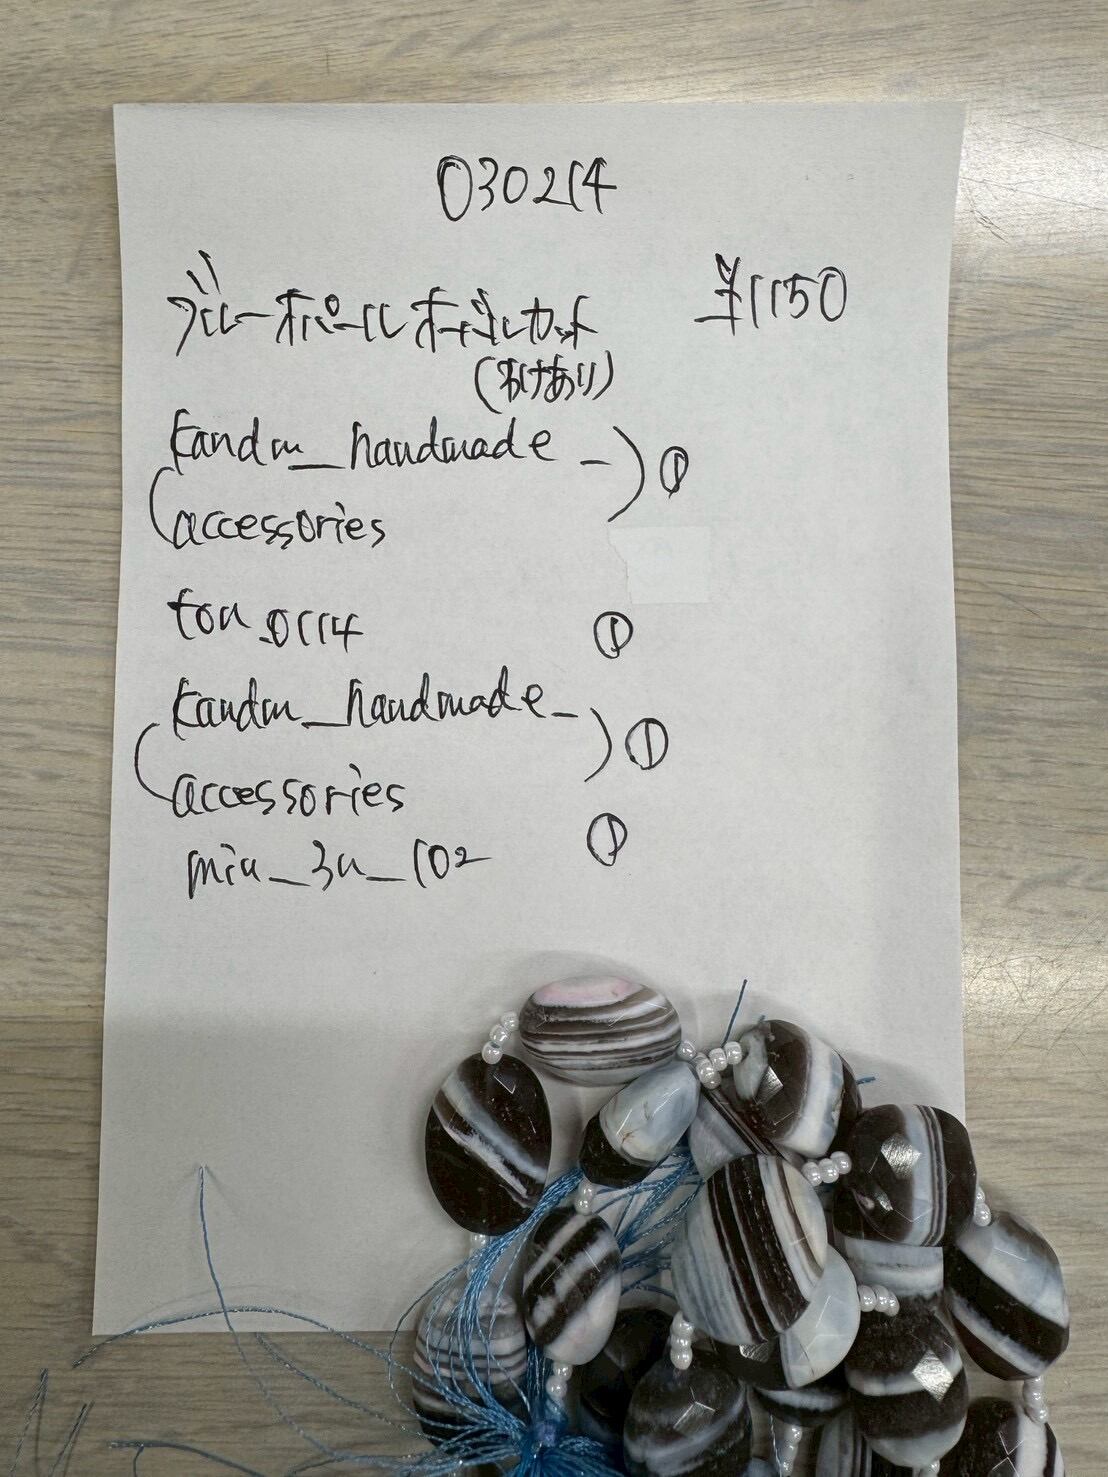 030214
ブルーオパールオーバルカット ¥1150
(わけあり)
kandm_handmade_
accessories ①
ton_0114 ①
kandm_handmade_
accessories ①
miu_3u_102 ①